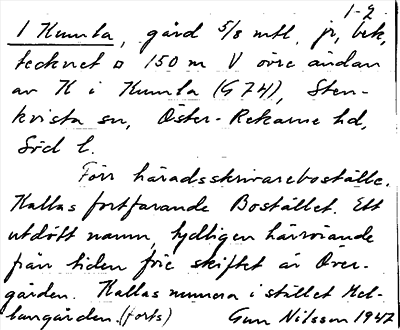 1-2
1 Kumla, gård 5/8 mtl. jr, bet,
tecknet □ 150 m V övre ändan
av K i Kumla (G 7H), Sten-
kvista sn, Öster-Rekarne hd,
Söd l.
Förr häradsskrivareboställe.
Kallas fortfarande Bostället. Ett
utdött namn, tydligen härrörande
från tiden före skiftet är Över-
gården. Kallas numera i stället Mel-
langården. (forts) Gun Nilsson 1947